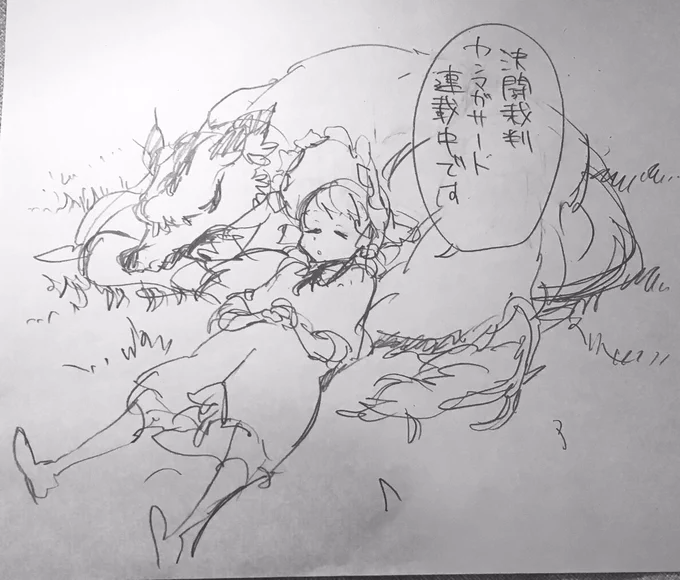 決闘裁判
ヤンマガサード
連載中です